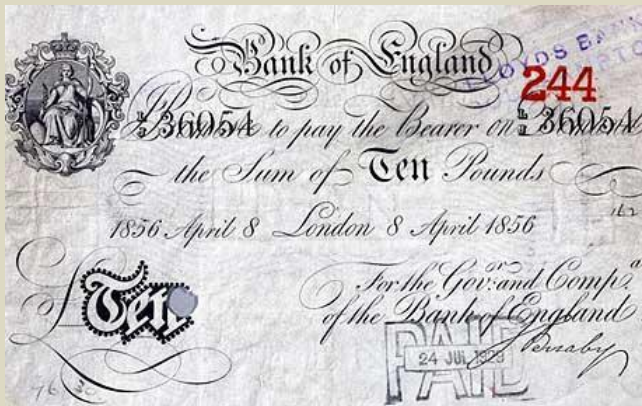 Bank of England
LLOYDS BANK
244
36054 to pay the Bearer on 36054
the Sum of Ten Pounds
1856 April 8 London 8 April 1856
£Ten
For the Gov.r and Comp.a
of the Bank of England
PAID
24 JUL 1929
76